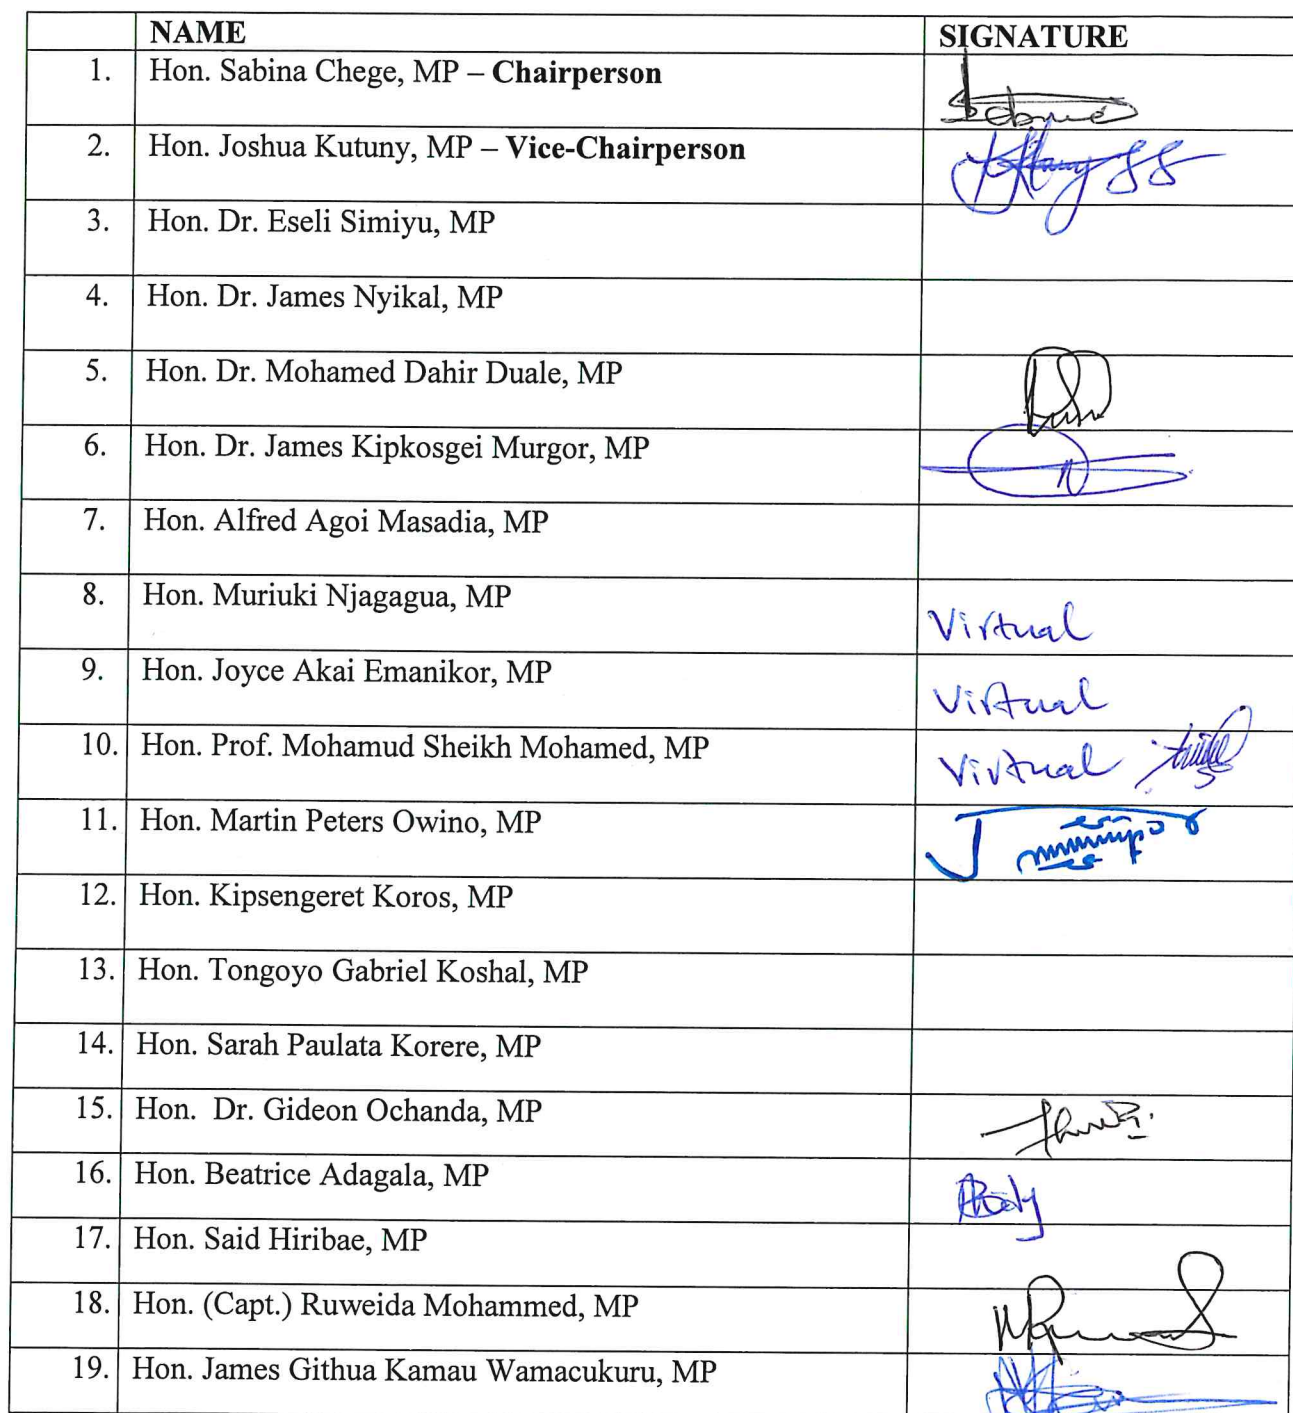 NAME SIGNATURE
1. Hon. Sabina Chege, MP – Chairperson
2. Hon. Joshua Kutuny, MP – Vice-Chairperson
3. Hon. Dr. Eseli Simiyu, MP
4. Hon. Dr. James Nyikal, MP
5. Hon. Dr. Mohamed Dahir Duale, MP
6. Hon. Dr. James Kipkosgei Murgor, MP
7. Hon. Alfred Agoi Masadia, MP
8. Hon. Muriuki Njagagua, MP Virtual
9. Hon. Joyce Akai Emanikor, MP Virtual
10. Hon. Prof. Mohamud Sheikh Mohamed, MP Virtual
11. Hon. Martin Peters Owino, MP
12. Hon. Kipsengeret Koros, MP
13. Hon. Tongoyo Gabriel Koshal, MP
14. Hon. Sarah Paulata Korere, MP
15. Hon. Dr. Gideon Ochanda, MP
16. Hon. Beatrice Adagala, MP
17. Hon. Said Hiribae, MP
18. Hon. (Capt.) Ruweida Mohammed, MP
19. Hon. James Githua Kamau Wamacukuru, MP